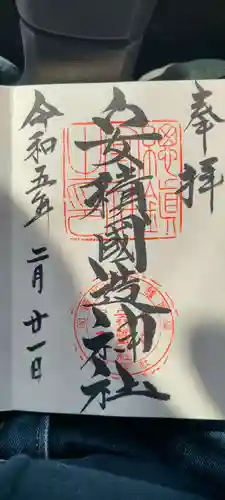 奉拝
安積國造神社
令和五年
二月廿一日